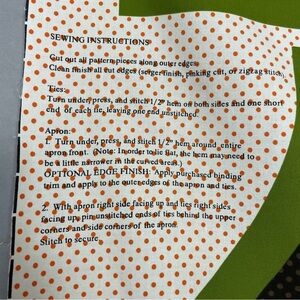 SEWING INSTRUCTIONS
Cut out all pattern pieces along outer edges.
Clean finish all cut edges (serger finish, pinking cut, or zigzag stitch).
Ties:
Turn under, press, and stitch 1/2" hem on both sides and one short
end of each tie, leaving one end unstitched.
Apron:
1. Turn under, press, and stitch 1/2" hem around entire
apron front. (Note: In order to lie flat, the hem may need to
be a little narrower in the curved areas.)
OPTIONAL EDGE FINISH: Apply purchased binding
trim and apply to the outer edges of the apron and ties.
2. With apron right side facing up and ties right sides
facing up, pin unstitched ends of ties behind the upper
corners and side corners of the apron.
Stitch to secure.